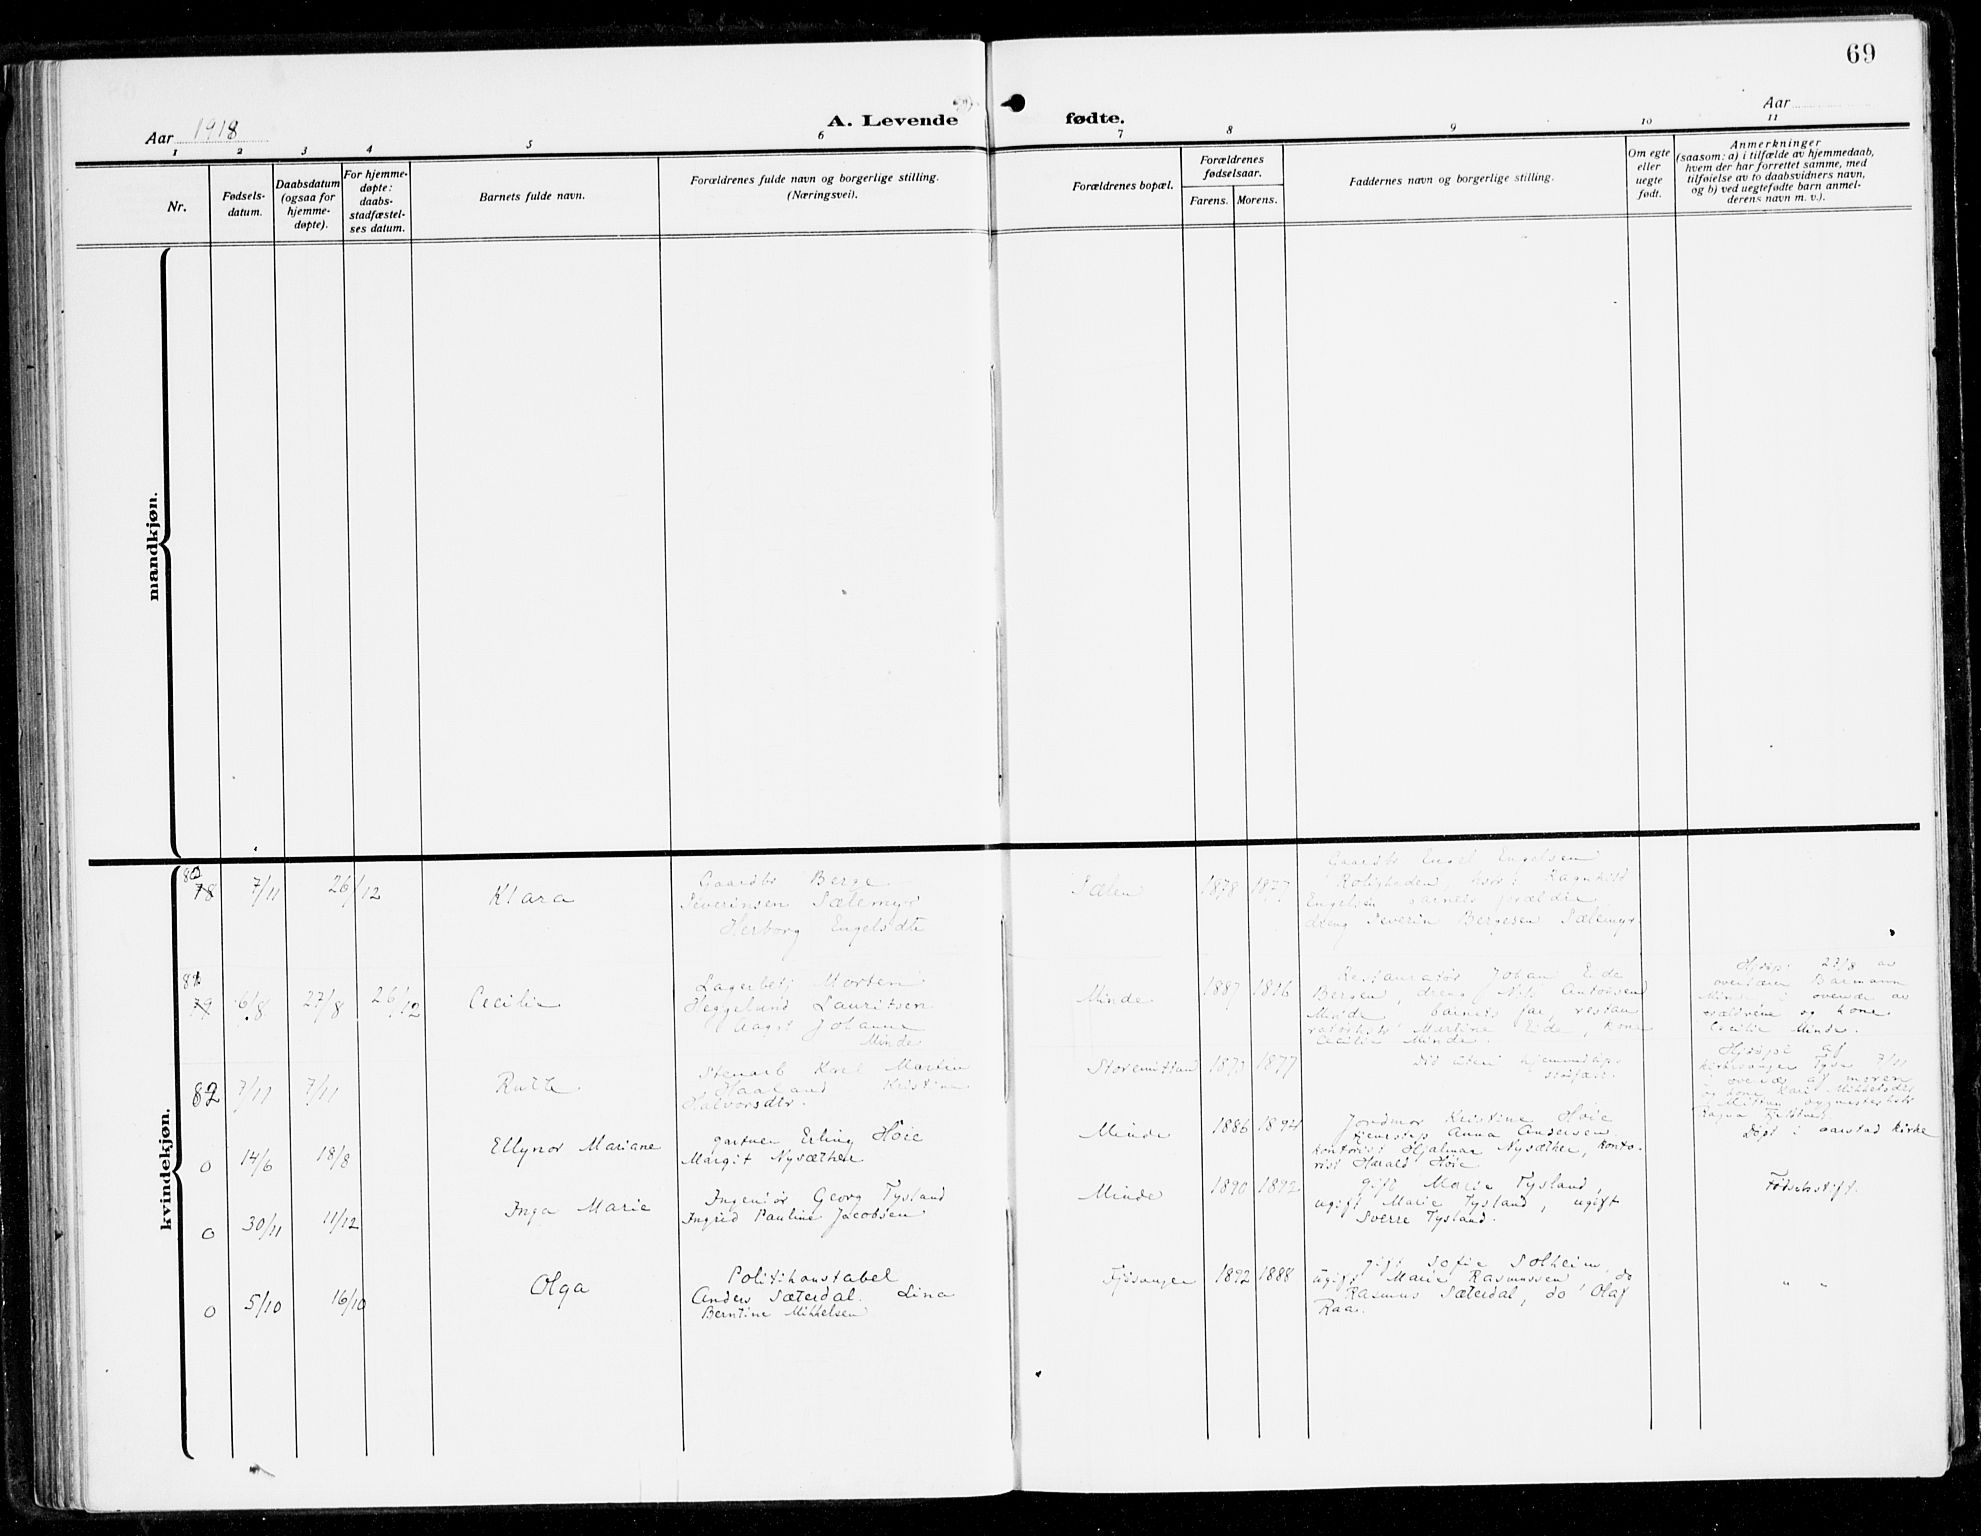 69
Aar 1918
A. Levende fødte.
Aar
1 2 3 4 5 6 7 8 9 10 11
Nr.
Fødsels-
datum.
Daabsdatum
(ogsaa for
hjemme-
døpte).
For hjemme-
døpte:
daabs-
stadfæstel-
ses datum.
Barnets fulde navn.
Forældrenes fulde navn og borgerlige stilling.
(Næringsvei).
Forældrenes bopæl.
Forældrenes
fødselsaar.
Farens. Morens.
Faddernes navn og borgerlige stilling.
Om egte
eller
uegte
født.
Anmerkninger
(saasom: a) i tilfælde av hjemmedaab,
hvem der har forrettet samme, med
tilføielse av to daabsvidners navn,
og b) ved uegtefødte barn anmel-
derens navn m. v.).
mandkjøn.
kvindekjøn.
80
78 7/11 26/12 Klara
Gaardbr Berge
Severinsen Sælemyr
Herborg Engelsdtr
Sælen 1878 1877
Gaardbr Engel Engelsen
Roligheden, Ragnhild
Engelsen barnets forældre,
dreng Severin Bergesen Sælemyr
81
79 6/8 27/8 26/12 Cecilie
Lagerbetj Morten
Heggelund Lauritsen
Aagot Johanne
Minde
Minde 1887 1896
Restauratør Johan Eide
Bergen, dreng Nils Antonsen
Minde, barnets far, restau
Martine Eide, kone
Cecilie Minde.
Hjdøpt 27/8 av
overlærer Barmann
Minde i overvær av
forældrene og kone
Cecilie Minde.
82 7/11 7/11 Ruth.
Stenarb Karl Martin
Haaland Kristine
Halvorsdtr.
Storemittun 1873 1877
Hjdøpt af
kirkesanger 7/11
overvær af moren
og kone Kari Mikkelsdtr
Mittun
Ragna
0 14/6 18/8 Ellynor Mariane
gartner Erling Høie
Margit Nysæther
Minde 1886 1894
Jordmor Kristine Høie
Anna Andersen
kontorist Hjalmar Nysæther, konto-
rist Harald Høie
Døpt i aarstad kirke
0 30/11 11/12 Inga Marie
Ingeniør Georg Tysland
Ingrid Pauline Jacobsen
Minde 1890 1892
gift Marie Tysland,
ugift Marie Tysland, ugift
Sverre Tysland.
Fødselsstift.
0 5/10 16/10 Olga
Politikonstabel
Anders Sæterdal. Lina
Berntine Mikkelsen
Fjøsanger 1892 1888
gift Sofie Solheim,
ugift Marie Rasmussen, do
Rasmus Sæterdal, do Olaf
Raa.
" "